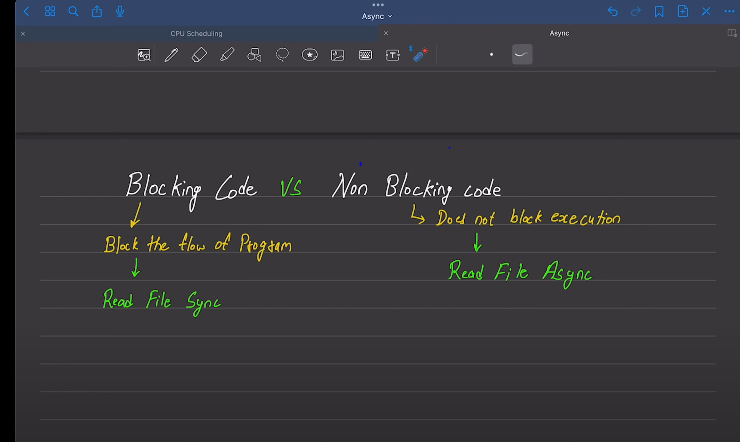 Async
CPU Scheduling
Async
Blocking Code VS Non Blocking code
Block the flow of Program
Read File Sync
Does not block execution
Read File Async